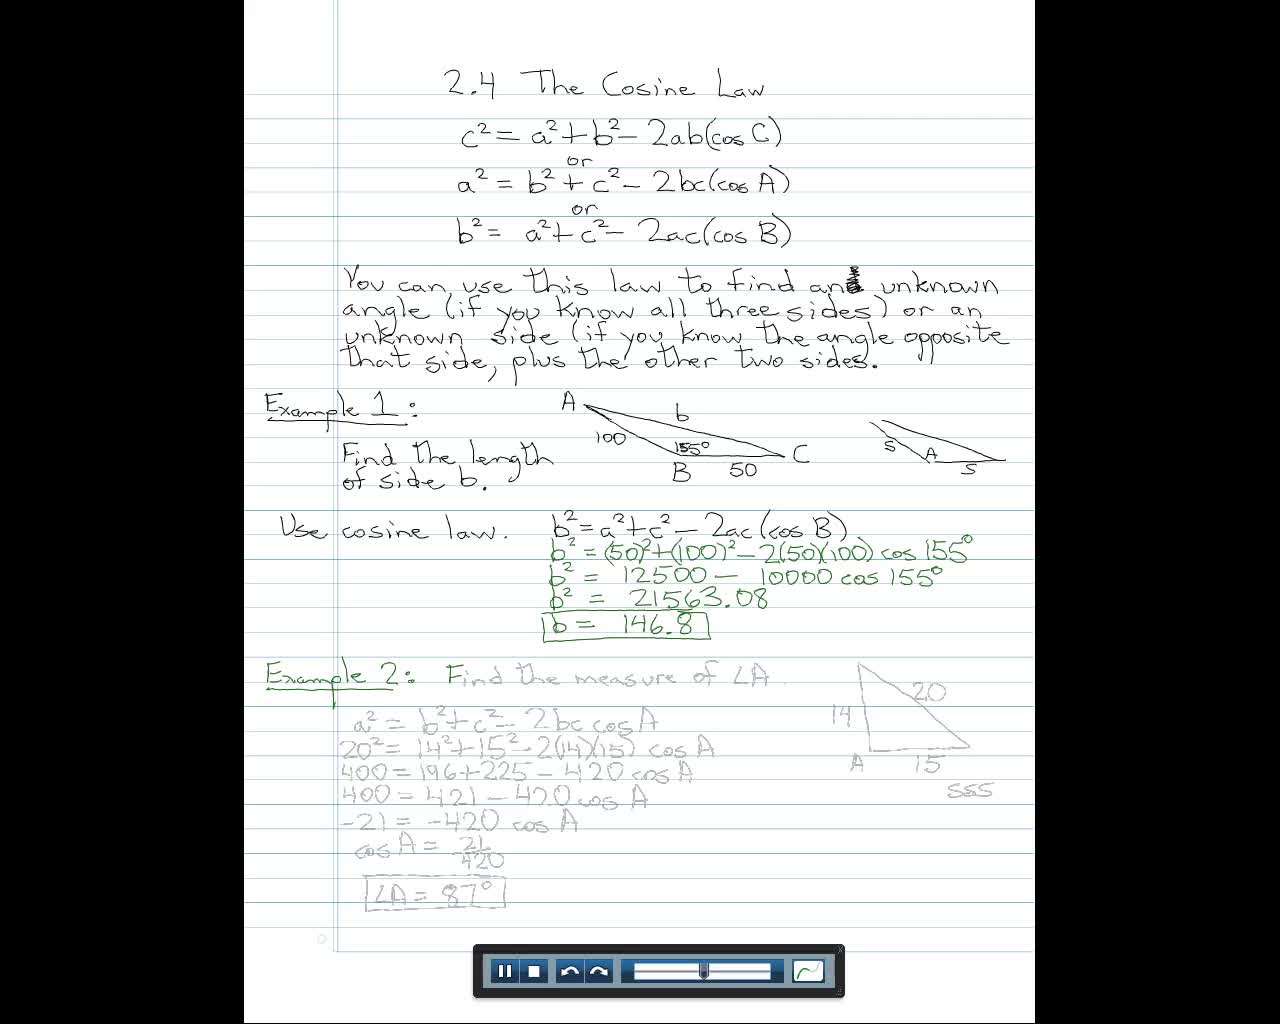 2.4 The Cosine Law
c² = a² + b² - 2ab(cos C)
or
a² = b² + c² - 2bc(cos A)
or
b² = a² + c² - 2ac(cos B)
You can use this law to find an unknown
angle (if you know all three sides) or an
unknown side (if you know the angle opposite
that side, plus the other two sides.
Example 1:
A
b
100
155°
C
B
50
S
A
S
Find the length
of side b.
Use cosine law.
b² = a² + c² - 2ac(cos B)
b² = (50)² + (100)² - 2(50)(100) cos 155°
b² = 12500 - 10000 cos 155°
b² = 21563.08
b = 146.8
Example 2: Find the measure of ∠A.
20
14
A
15
SSS
a² = b² + c² - 2bc cos A
20² = 14² + 15² - 2(14)(15) cos A
400 = 196 + 225 - 420 cos A
400 = 421 - 420 cos A
-21 = -420 cos A
cos A = 21/420
∠A = 87°